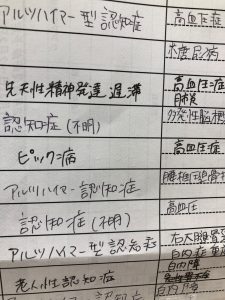 アルツハイマー型認知症 高血圧症
糖尿病
先天性精神発達遅滞 高血圧症
肺炎
認知症(不明) 多発性脳梗
ピック病 高血圧症
アルツハイマー認知症 腰椎圧迫骨
認知症(不明) 高血圧
アルツハイマー型認知症 右大腿骨
白内症
老人性認知症 白内障
認知症(不明) 白内障